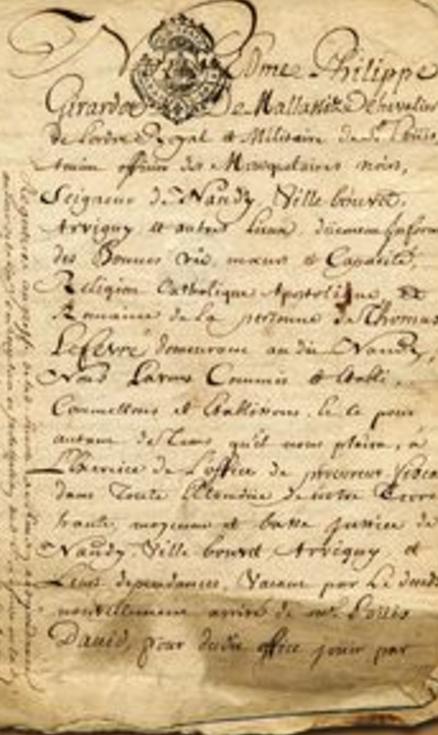 Nous Edme Philippe
Girardot De Mallassize Chevalier
de Lordre Royal et Militaire de St. Louis,
officier des Mousquetaires noirs,
Seigneur De Nandy, Ville bouvet,
Arvigny et autres Lieux, duement Inform
des Bonnes vie, mœurs et Capacité,
Religion Catholique Apostolique, et
Romaine de la personne de Thomas
Lefevre demeurant audit Nandy,
Nous Lavons Commis et Etabli,
Commettons et Etablissons, Le dt pour
autant de Tems quil nous plaira, à
Lexercice de Loffice de procureur fisca
dans Toute Létendue de notre Terre
haute, moyenne et basse justice de
Nandy, Ville bouvet Arvigny et
Leurs dependances, Vacant par Le deceds
nouvellement arrivé de mr. Louis
David, pour dudit office jouir par